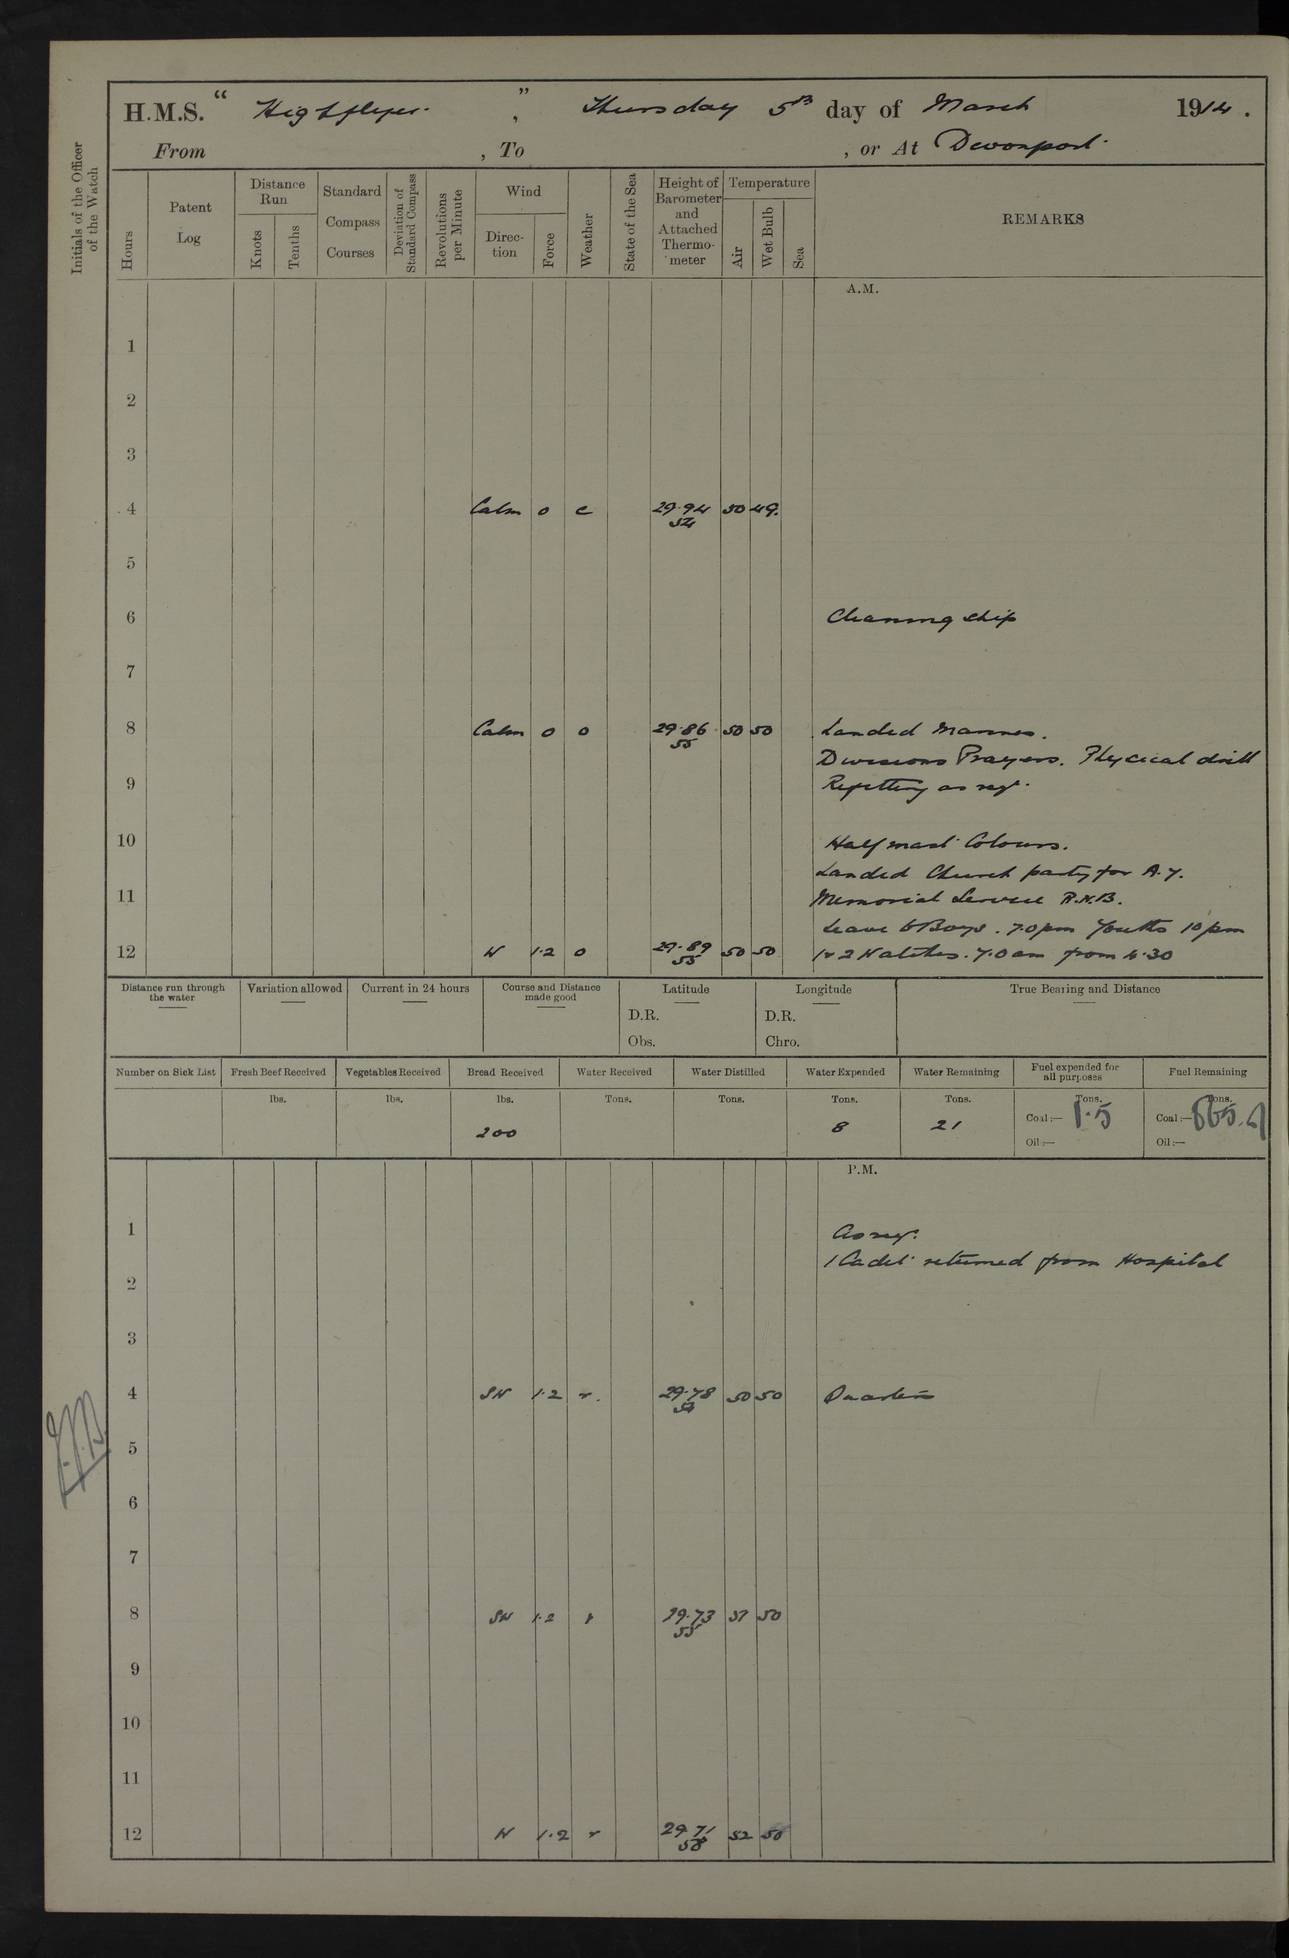 H.M.S. “ Highflyer. ” , Thursday 5th day of March 1914.
From , To , or At Devonport.
Initials of the Officer of the Watch
Hours
Patent Log
Distance Run
Knots
Tenths
Standard Compass Courses
Deviation of Standard Compass
Revolutions per Minute
Wind
Direction
Force
Weather
State of the Sea
Height of Barometer and Attached Thermometer
Temperature
Air
Wet Bulb
Sea
REMARKS
A.M.
1
2
3
4 Calm 0 c 29.94 54 50 49.
5
6 Cleaning ship
7
8 Calm 0 o 29.86 55 50 50 Landed Marines.
Divisions Prayers. Physical drill
9 Refitting as req.
10 Half mast Colours.
Landed Church party for
11 Memorial Service R.N.B.
Leave to Boys. 7.0pm Youths 10pm
12 W 1.2 o 29.89 55 50 50 1 & 2 Watches. 7.0 am from 4.30
Distance run through the water
Variation allowed
Current in 24 hours
Course and Distance made good
Latitude
D.R.
Obs.
Longitude
D.R.
Chro.
True Bearing and Distance
Number on Sick List
Fresh Beef Received
lbs.
Vegetables Received
lbs.
Bread Received
lbs.
200
Water Received
Tons.
Water Distilled
Tons.
Water Expended
Tons.
8
Water Remaining
Tons.
21
Fuel expended for all purposes
Tons.
Coal:— 1.5
Oil:—
Fuel Remaining
Tons.
Coal:—
Oil:—
P.M.
1 As req.
1 Cadet returned from Hospital
2
3
4 SW 1.2 r. 29.78 54 50 50 Quarters
5
6
7
8 SW 1.2 r 29.73 55 51 50
9
10
11
12 W 1.2 r 29.71 58 52 50